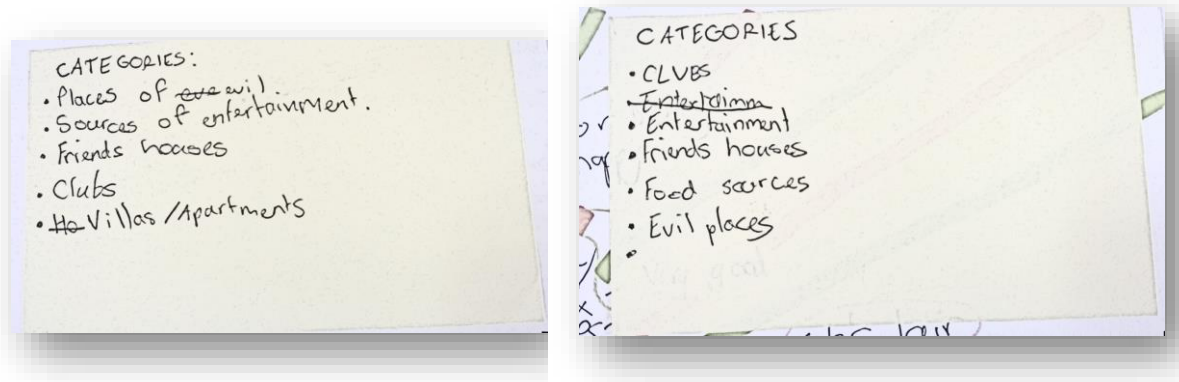 CATEGORIES:
• Places of eve evil.
• Sources of entertainment.
• Friends houses
• Clubs
• Ho Villas / Apartments
CATEGORIES
• CLUBS
• Entertainm
• Entertainment
• Friends houses
• Food sources
• Evil places
•
very good